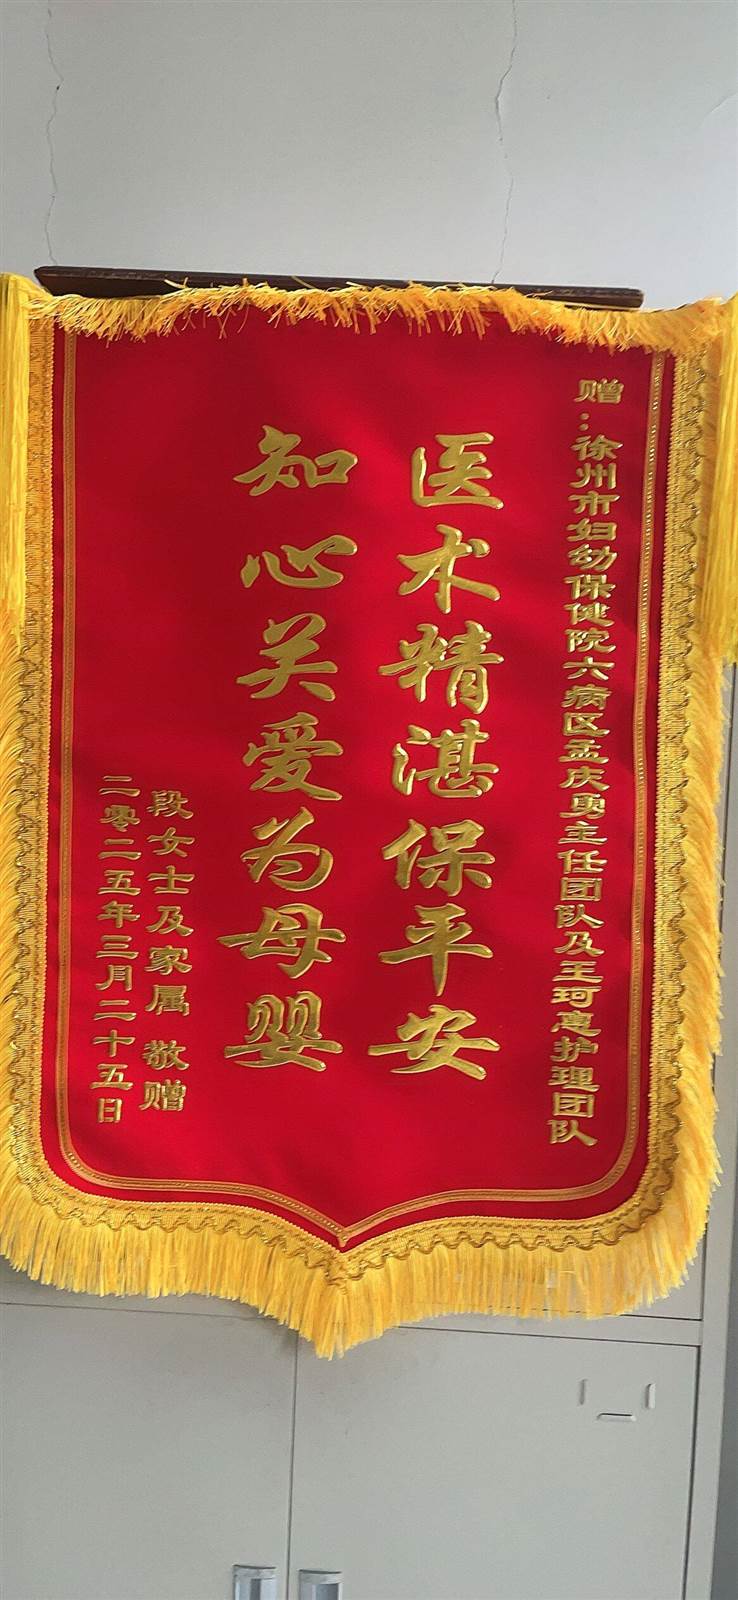 赠：徐州市妇幼保健院六病区孟庆勇主任团队及王珂惠护理团队
医术精湛保平安
知心关爱为母婴
段女士及家属 敬赠
二零二五年三月二十五日